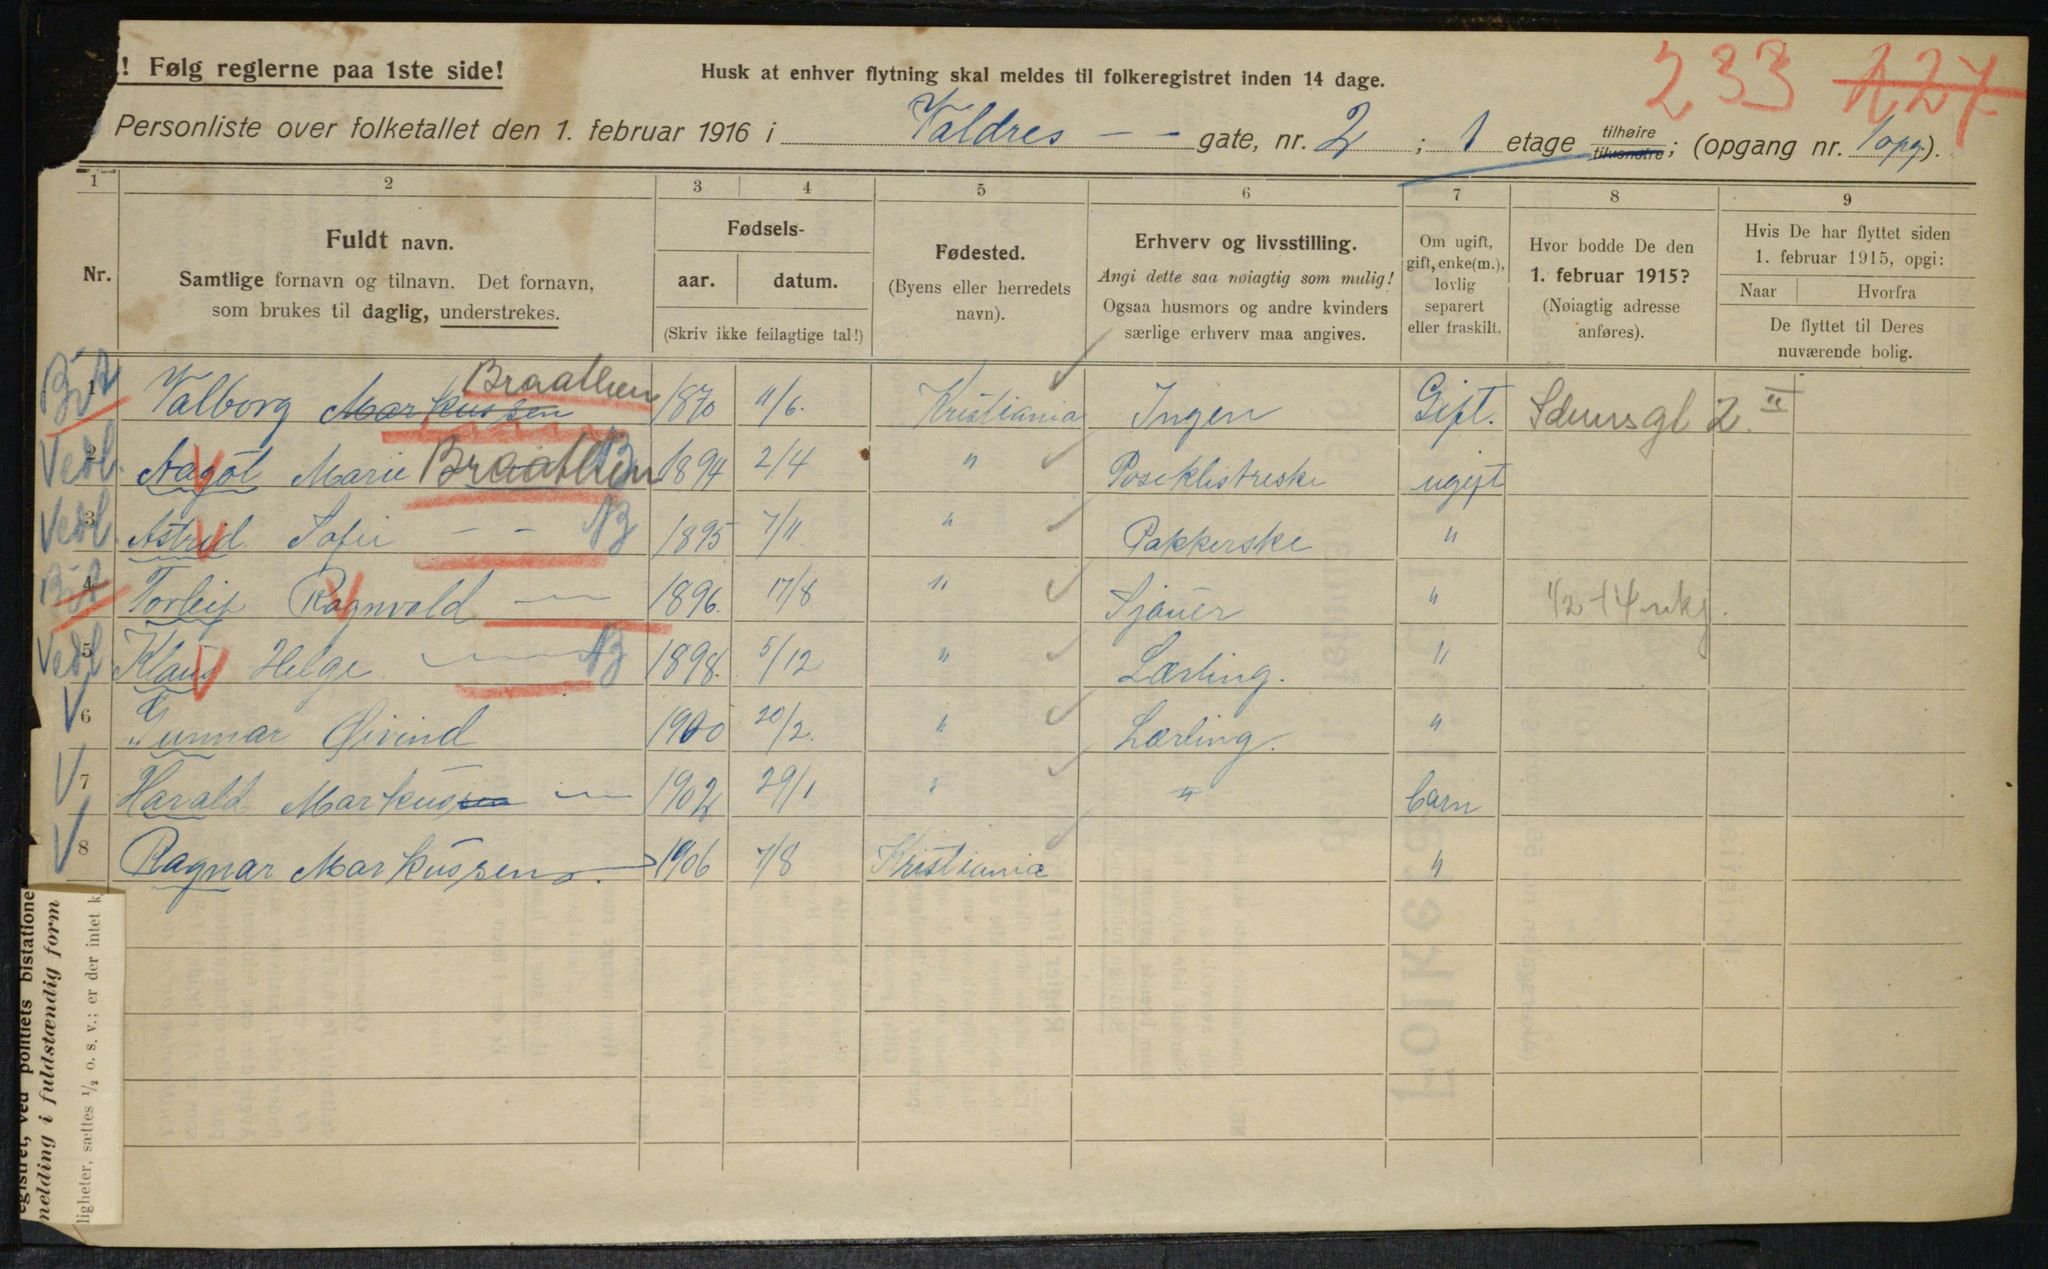 ! Følg reglerne paa 1ste side!
Husk at enhver flytning skal meldes til folkeregistret inden 14 dage.
233 127
Personliste over folketallet den 1. februar 1916 i Valdres - - gate, nr. 2 ; 1 etage tilhøire tilvenstre; (opgang nr. 1 opg.).
1 2 3 4 5 6 7 8 9
Nr.
Fuldt navn.
Samtlige fornavn og tilnavn. Det fornavn,
som brukes til daglig, understrekes.
Fødsels-
aar. datum.
(Skriv ikke feilagtige tal!)
Fødested.
(Byens eller herredets
navn).
Erhverv og livsstilling.
Angi dette saa nøiagtig som mulig!
Ogsaa husmors og andre kvinders
særlige erhverv maa angives.
Om ugift,
gift, enke(m.),
lovlig
separert
eller fraskilt.
Hvor bodde De den
1. februar 1915?
(Nøiagtig adresse
anføres).
Hvis De har flyttet siden
1. februar 1915, opgi:
Naar Hvorfra
De flyttet til Deres
nuværende bolig.
1 Valborg Markussen Braathen 1870 11/6. Kristiania Ingen Gift. 2 II
Vedl. 2 Aagot Marie Braathen 1894 2/4 " Poseklistreske ugift
Vedl. 3 Astrid Sofie - - 1895 7/11 " Pakkerske "
4 Torleif Ragnvald - 1896. 17/8 " Sjauer "
Vedl 5 Klaus Helge - 1898. 5/12 " Lærling. "
6 Gunnar Øivind 1900 20/2. " Lærling. "
7 Harald Markussen - 1902 29/1 " " barn
8 Ragnar Markussen. 1906 7/8 Kristiania "
egistret, ved politiets bistatione
melding i fuldstændig form
ligheter, sættes 1/2 o. s. v.; er der intet k